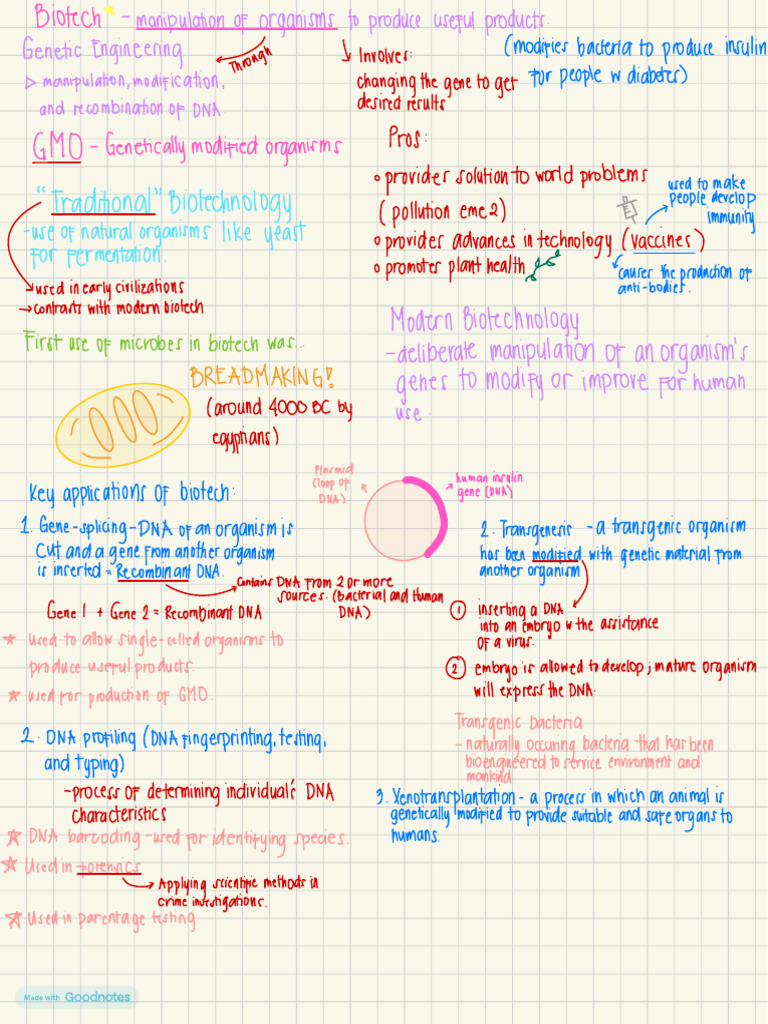 Biotech - manipulation of organisms to produce useful products.
Genetic Engineering
Through
▷ manipulation, modification,
and recombination of DNA.
Involves:
changing the gene to get
desired results
(modifies bacteria to produce insulin
for people w diabetes)
GMO - Genetically modified organisms
"Traditional" Biotechnology
-use of natural organisms like yeast
for fermentation.
used in early civilizations
→ contrasts with modern biotech
Pros:
provides solution to world problems
(pollution eme 2)
provides advances in technology (vaccines)
promotes plant health
used to make
people develop
immunity
causes the production of
anti-bodies.
First use of microbes in biotech was...
BREADMAKING!
(around 4000 BC by
egyptians)
Modern Biotechnology
-deliberate manipulation of an organism's
genes to modify or improve for human
use.
Key applications of biotech:
Plasmid
(loop of
DNA)
human insulin
gene (DNA)
1. Gene-splicing-DNA of an organism is
cut and a gene from another organism
is inserted = Recombinant DNA.
contains DNA from 2 or more
sources. (bacterial and Human
DNA)
Gene 1 + Gene 2 = Recombinant DNA
★ used to allow single-celled organisms to
produce useful products.
★ used for production of GMO.
2. Transgenesis - a transgenic organism
has been modified with genetic material from
another organism
① inserting a DNA
into an embryo w the assistance
of a virus.
② embryo is allowed to develop; mature organism
will express the DNA.
Transgenic bacteria
- naturally occuring bacteria that has been
bioengineered to service environment and
mankind
2. DNA profiling (DNA fingerprinting, testing,
and typing)
-process of determining individual's DNA
characteristics
★ DNA barcoding -used for identifying species.
★ Used in forensics
Applying scientific methods in
crime investigations.
★ Used in parentage testing
3. Xenotransplantation - a process in which an animal is
genetically modified to provide suitable and safe organs to
humans.
Made with Goodnotes